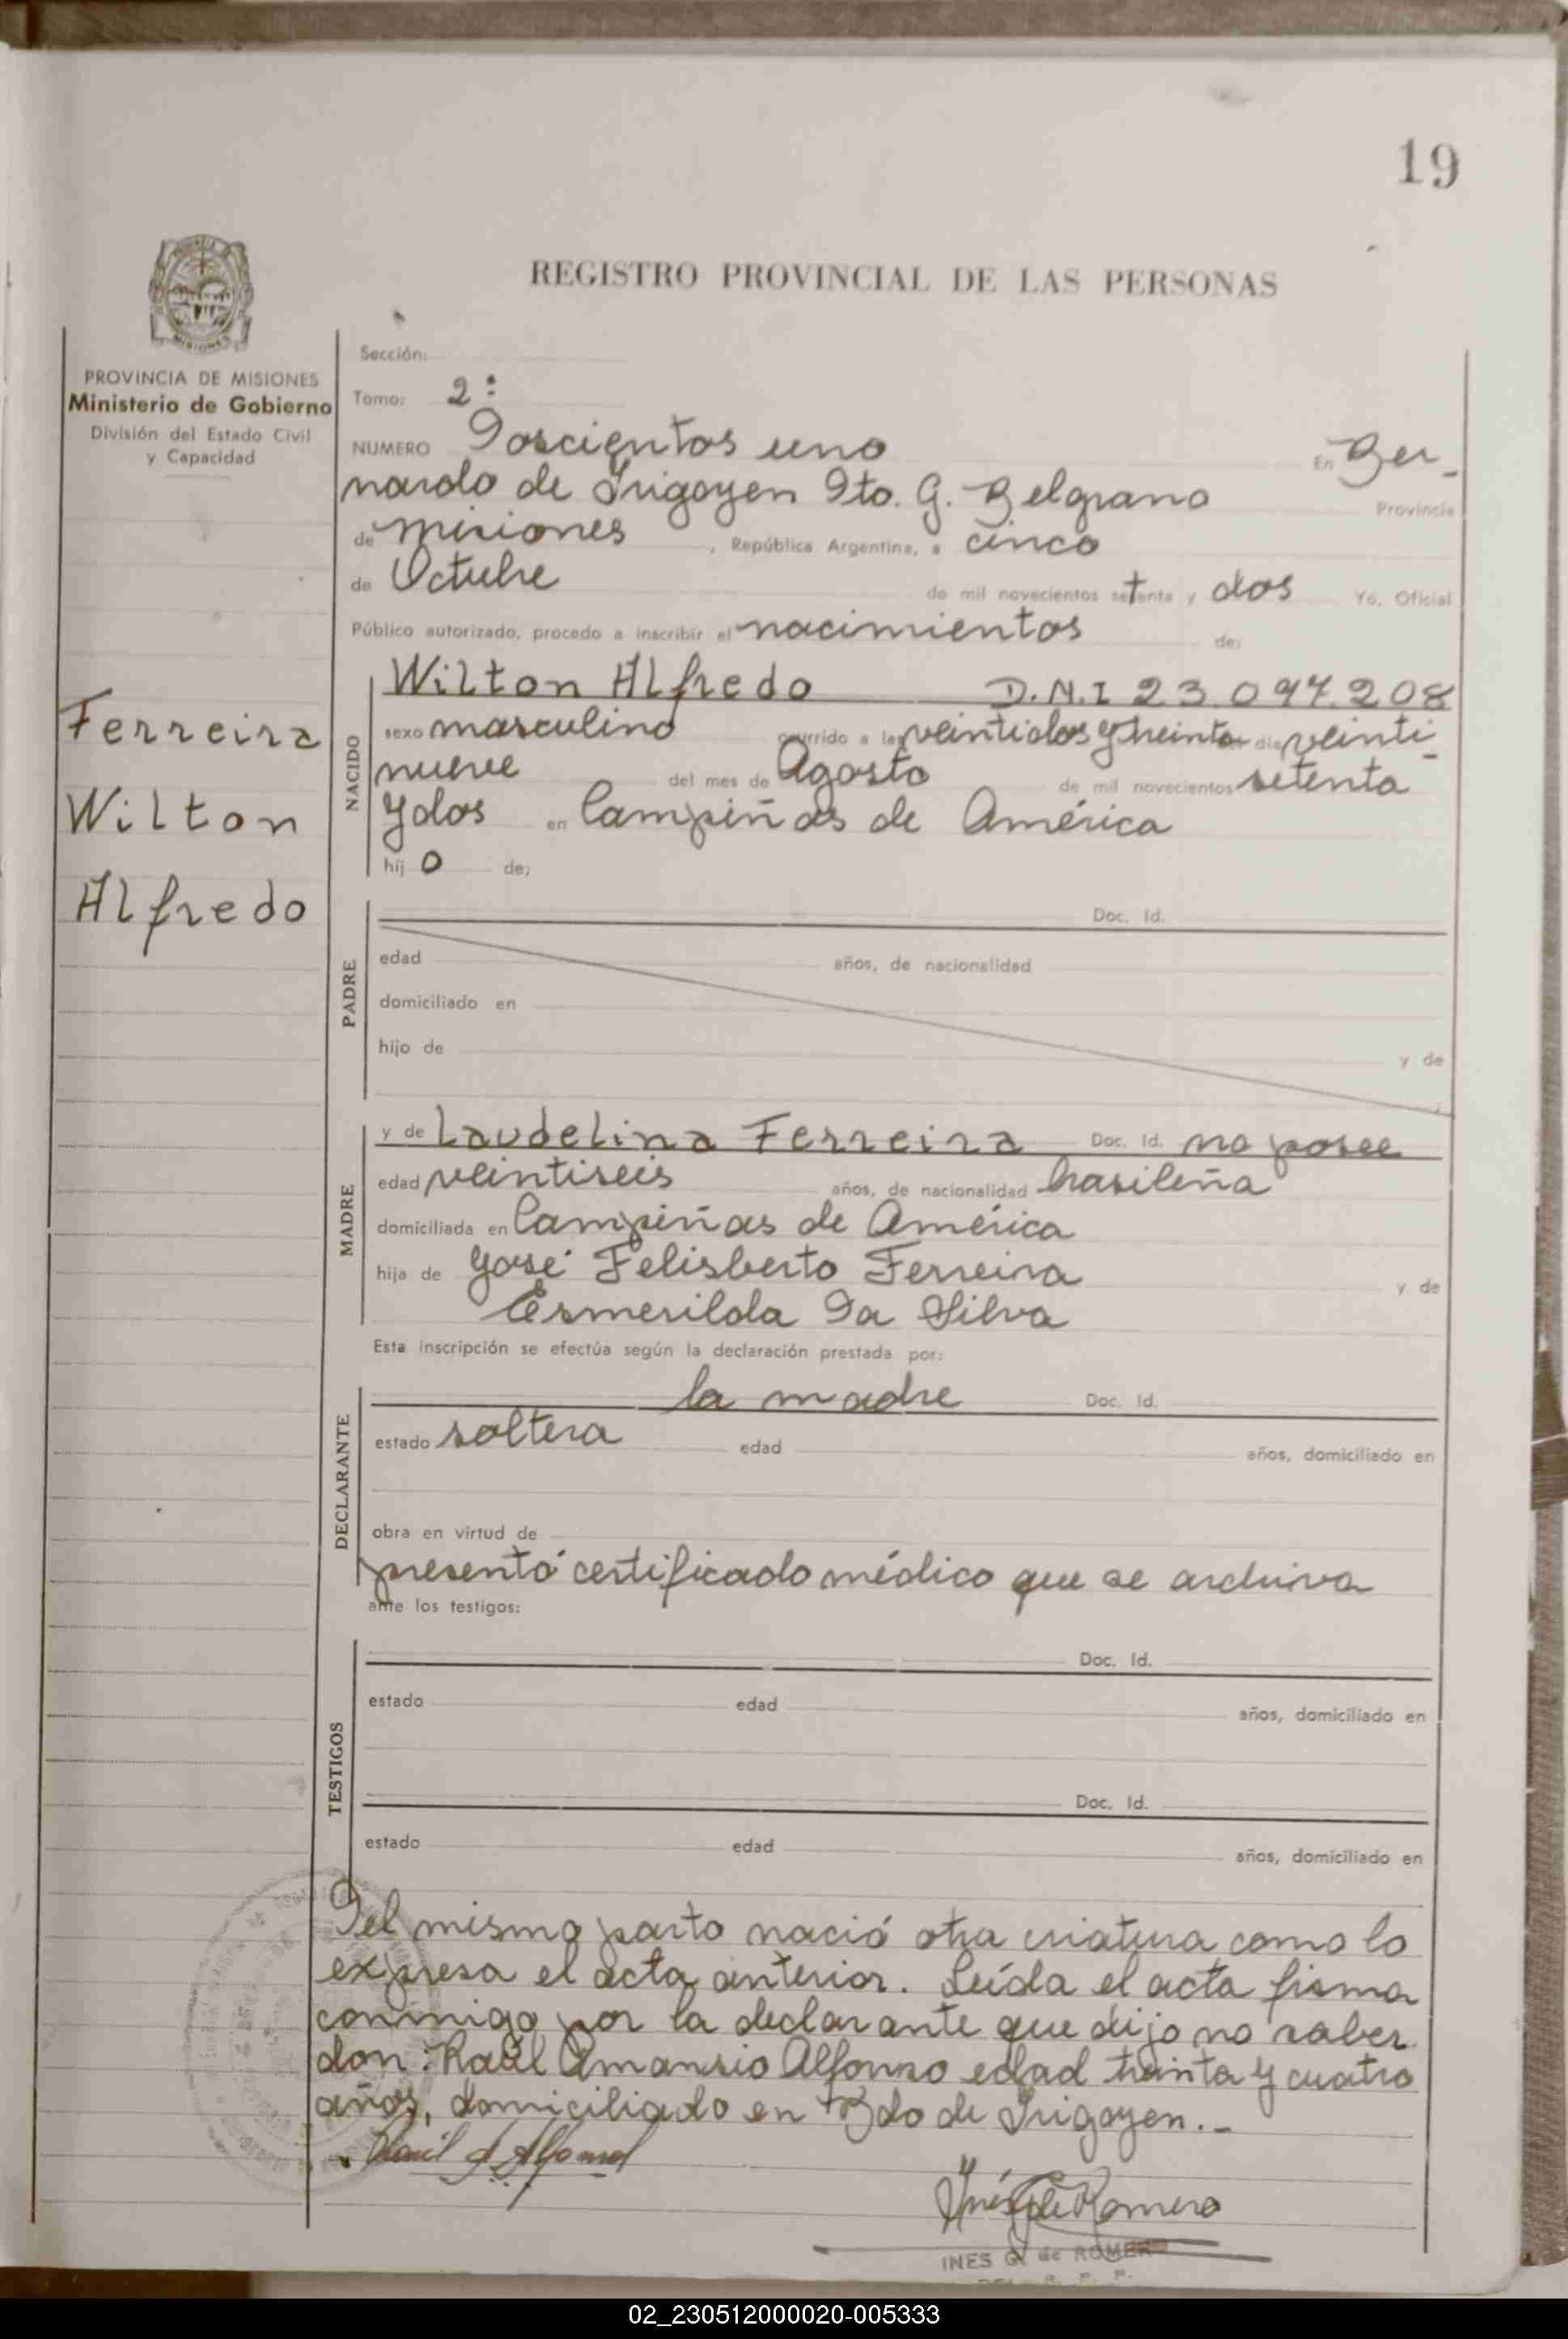 19
REGISTRO PROVINCIAL DE LAS PERSONAS
MISIONES
PROVINCIA DE MISIONES
Ministerio de Gobierno
División del Estado Civil
y Capacidad
Ferreira
Wilton
Alfredo
Sección:
Tomo: 2:
NUMERO Doscientos uno En Ber-
nardo de Irigoyen Dto. G. Belgrano Provincia
de misiones, República Argentina, a cinco
de Octubre de mil novecientos setenta y dos Yo, Oficial
Público autorizado, procedo a inscribir el nacimientos de:
NACIDO
Wilton Alfredo D.N.I 23.097.208
sexo masculino ocurrido a las veintidos y treinta día veinti-
nueve del mes de Agosto de mil novecientos setenta
y dos en Campiñas de América
hij o de;
PADRE
Doc. Id.
edad años, de nacionalidad
domiciliado en
hijo de y de
MADRE
y de Laudelina Ferreira Doc. Id. no posee
edad veintiseis años, de nacionalidad brasileña
domiciliada en Campiñas de América
hija de José Felisberto Ferreira y de
Esmerilda Da Silva
Esta inscripción se efectúa según la declaración prestada por:
DECLARANTE
la madre Doc. Id.
estado soltera edad años, domiciliado en
obra en virtud de
presentó certificado médico que se archiva
ante los testigos:
TESTIGOS
Doc. Id.
estado edad años, domiciliado en
Doc. Id.
estado edad años, domiciliado en
Del mismo parto nació otra criatura como lo
expresa el acta anterior. Leída el acta firma
conmigo por la declarante que dijo no saber
don: Raúl Amansio Alfonso edad treinta y cuatro
años, domiciliado en Bdo de Irigoyen.-
Raúl A Alfonso
Inés G de Romero
INES G. de ROMERO
R. P. P.
02_230512000020-005333